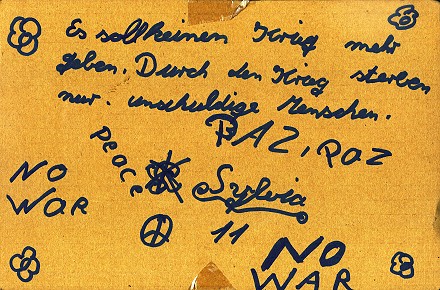 Es soll keinen Krieg mehr
geben. Durch den Krieg sterben
nur unschuldige Menschen.
PAZ, PAZ
Peace
NO
WAR
Sylvia
11
NO
WAR